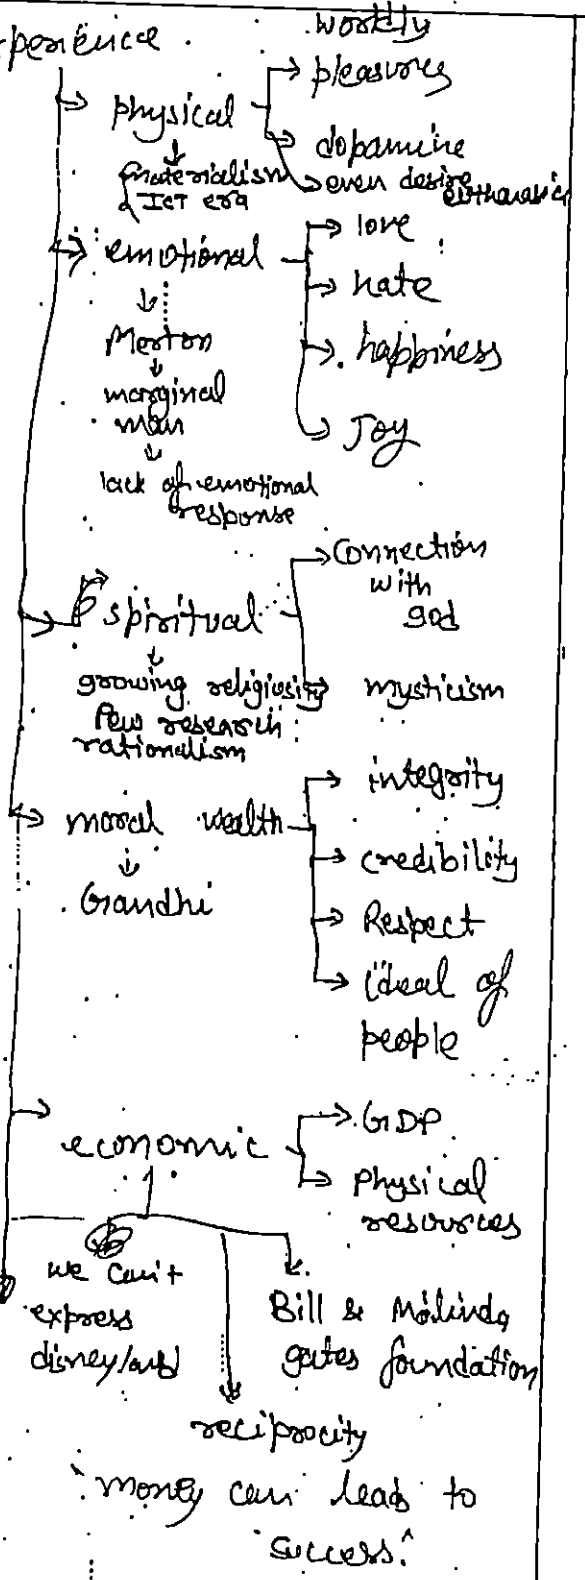 perience
worldly
pleasures
physical
dopamine
even desire
materialism
ICT era
emotional
love
hate
happiness
Joy
Merton
marginal
man
lack of emotional
response
spiritual
Connection
with
god
mysticism
growing religiosity
Pew research
rationalism
moral wealth
integrity
credibility
Respect
ideal of
people
Gandhi
economic
GDP
physical
resources
we can't
express
Bill & Malinda
gates foundation
reciprocity
money can lead to
success.